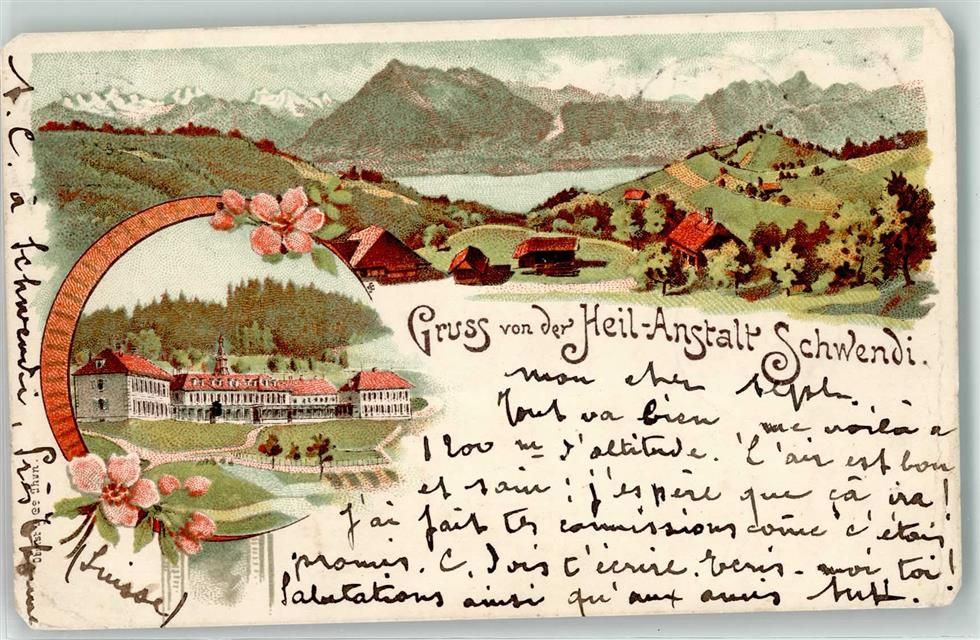 Gruss von der Heil-Anstalt Schwendi.
mon cher
Tout va bien me voilà à
1200 m d'altitude. L'air est bon
et sain ; j'espère que çà ira !
J'ai fait tes commissions come c'étais
promis. C. Dois t'écrire. Ecris-moi toi !
Salutations ainsi qu'aux amis
A. C. à Schwendi, Près Thoune
(Suisse)